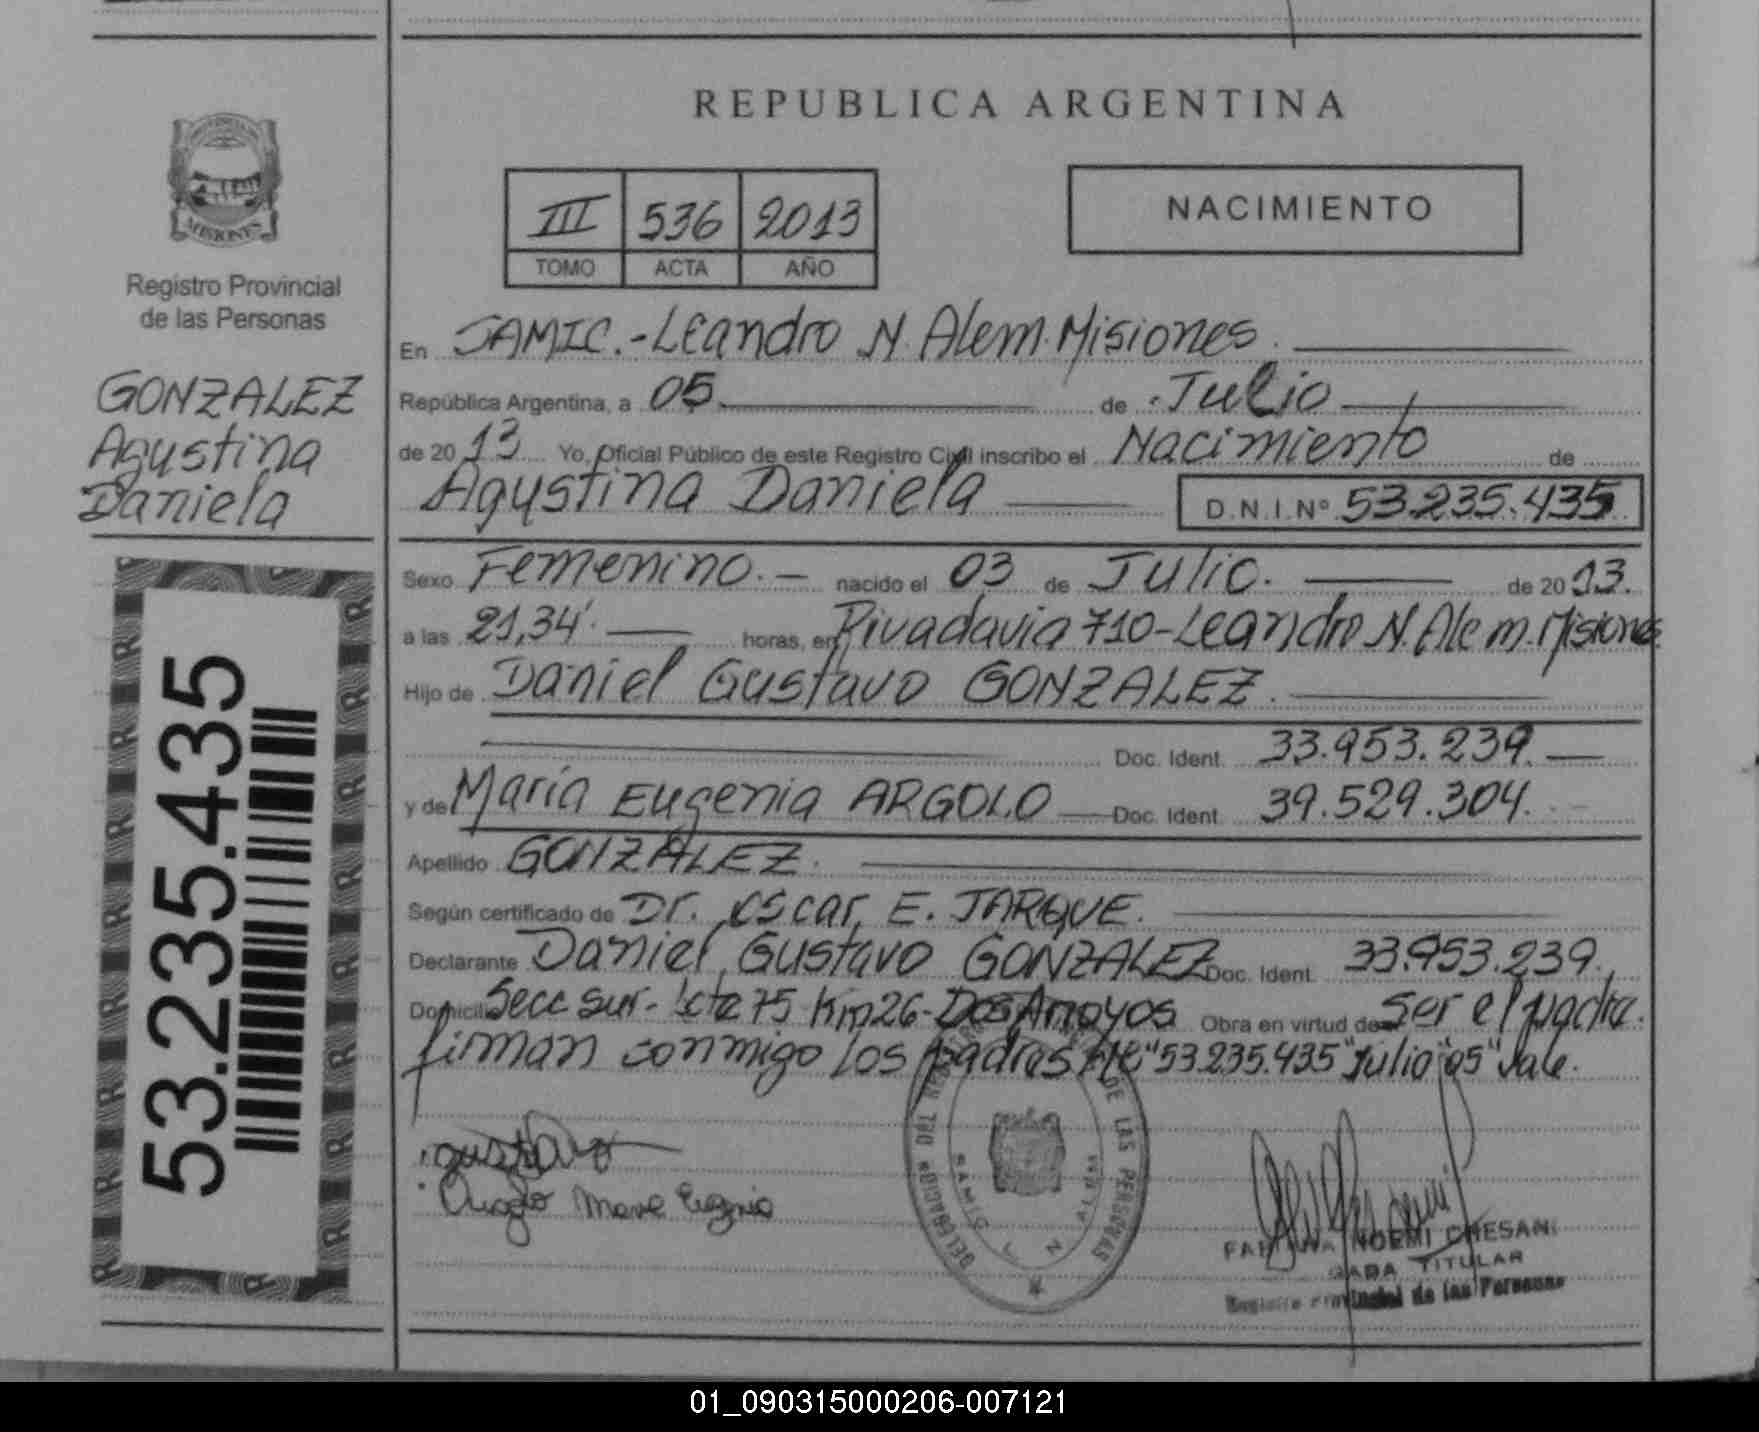 REPUBLICA ARGENTINA
PROVINCIA DE
MISIONES
Registro Provincial
de las Personas
GONZALEZ
Agustina
Daniela
53.235.435
III 536 2013
TOMO ACTA AÑO
NACIMIENTO
En JAMIC.-Leandro N. Alem. Misiones.
República Argentina, a 05 de Julio
de 2013 Yo, Oficial Público de este Registro Civil inscribo el Nacimiento de
Agustina Daniela D.N.I.Nº 53.235.435
Sexo Femenino.- nacido el 03 de Julio. de 2013.
a las 21,34'. horas, en Rivadavia 710-Leandro N. Alem. Misiones
Hijo de Daniel Gustavo GONZALEZ.
Doc. Ident. 33.953.239.
y de María Eugenia ARGOLO Doc. Ident. 39.529.304.
Apellido GONZALEZ.
Según certificado de Dr. Oscar, E. JARQUE.
Declarante Daniel Gustavo GONZALEZ Doc. Ident. 33.953.239.
Domicilio Secc Sur- Lote 75 Km26-Dos Arroyos Obra en virtud de ser el padre.
firman conmigo los padres "53.235.435" "Julio" "05" Vale.
gustavo
Argolo Maria Eugenia
DELEGACION DEL REGISTRO DE LAS PERSONAS
NOEMI CHESANI
TITULAR
Registro Provincial de las Personas
01_090315000206-007121